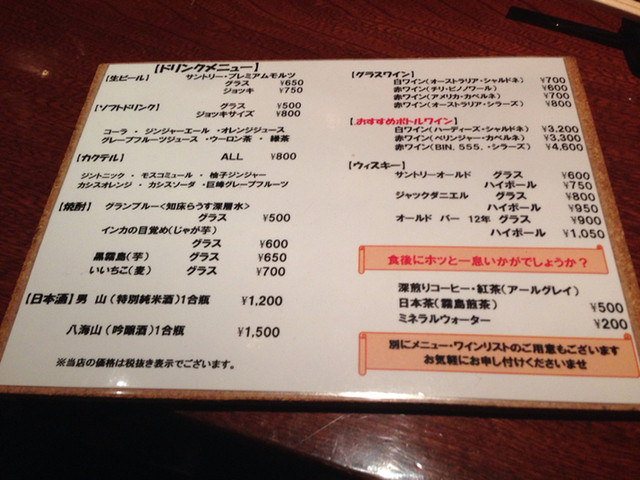 【ドリンクメニュー】
【生ビール】 サントリー・プレミアムモルツ
グラス ¥650
ジョッキ ¥750
【ソフトドリンク】 グラス ¥500
ジョッキサイズ ¥800
コーラ ・ ジンジャーエール ・オレンジジュース
グレープフルーツジュース ・ウーロン茶 ・ 緑茶
【カクテル】 ALL ¥800
ジントニック ・ モスコミュール ・ 柚子ジンジャー
カシスオレンジ ・ カシスソーダ ・巨峰グレープフルーツ
【焼酎】 グランブルー<知床らうす深層水>
グラス ¥500
インカの目覚め(じゃが芋)
グラス ¥600
黒霧島(芋) グラス ¥650
いいちこ(麦) グラス ¥700
【日本酒】 男 山 (特別純米酒)1合瓶 ¥1,200
八海山 (吟醸酒)1合瓶 ¥1,500
※当店の価格は税抜き表示でございます。
【グラスワイン】
白ワイン(オーストラリア・シャルドネ) ¥700
赤ワイン(チリ・ピノノワール) ¥600
赤ワイン(アメリカ・カベルネ) ¥700
赤ワイン(オーストラリア・シラーズ) ¥800
【おすすめボトルワイン】
白ワイン(ハーディーズ・シャルドネ) ¥3,200
赤ワイン(ベリンジャー・カベルネ) ¥3,300
赤ワイン(BIN, 555, ・シラーズ) ¥4,600
【ウィスキー】
サントリーオールド グラス ¥600
ハイボール ¥750
ジャックダニエル グラス ¥800
ハイボール ¥950
オールド パー 12年 グラス ¥900
ハイボール ¥1,050
食後にホッと一息いかがでしょうか？
深煎りコーヒー・紅茶(アールグレイ)
日本茶(霧島煎茶) ¥500
ミネラルウォーター ¥200
別にメニュー・ワインリストのご用意もございます
お気軽にお申し付けくださいませ